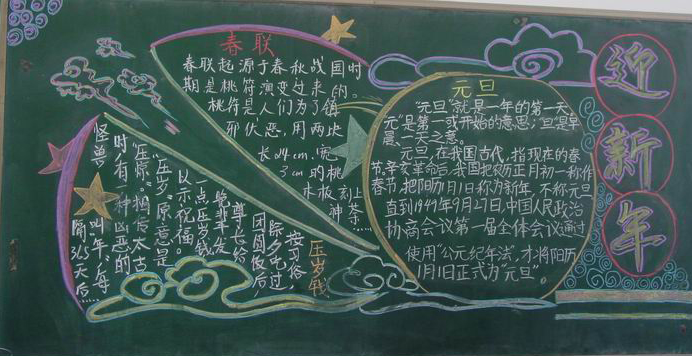 春联
春联起源于春秋战国时
期是桃符演变过来的。
桃符是人们为了镇
邪伏恶,用两块
长24cm.宽
3cm的桃
木板刻上
神荼……
压岁钱
按习俗,
除夕吃过
团圆饭后
尊长给
晚辈发
一点压岁钱
以示祝福。
“压岁”原意是
“压惊”,相传太古
时,有一种凶恶的
怪兽
叫年,每
隔365天后……
元旦
“元旦”就是一年的第一天。
元”是第一或开始的意思;旦是早
晨、一天之意。
元旦,在我国古代,指现在的春
节,辛亥革命后,我国把农历正月初一称作
春节,把阳历1月1日称为新年,不称元旦
直到1949年9月27日,中国人民政治
协商会议第一届全体会议通过
使用“公元纪年法”,才将阳历
1月1日正式为“元旦”。
迎
新
年